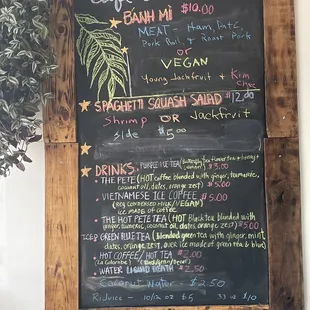 Café
BANH MÌ $10.00
MEAT - Ham, Paté,
Pork Roll, & Roast Pork
or
VEGAN
Young Jackfruit + Kim
Chee
SPAGHETTI SQUASH SALAD $12.00
Shrimp OR Jackfruit
side $5.00
DRINKS: PURPLE ICE TEA (Butterfly
$3.00
THE PETE (HOT coffee blended with ginger, turmeric,
coconut oil, dates, orange zest) $5.00
VIETNAMESE ICE COFFEE $5.00
ice made of coffee
THE HOT PETE TEA (HOT Black tea blended with
ginger, turmeric, coconut oil, dates, orange zest) $5.00
ICED GREEN
(blended green tea with ginger, mint,
dates, orange zest, over ice made of green tea &
HOT COFFEE / HOT TEA $2.00
(La Colombe)
WATER LIQUID DEATH $2.50
Coconut Water - $2.50
10/12 oz $5 33 oz $10